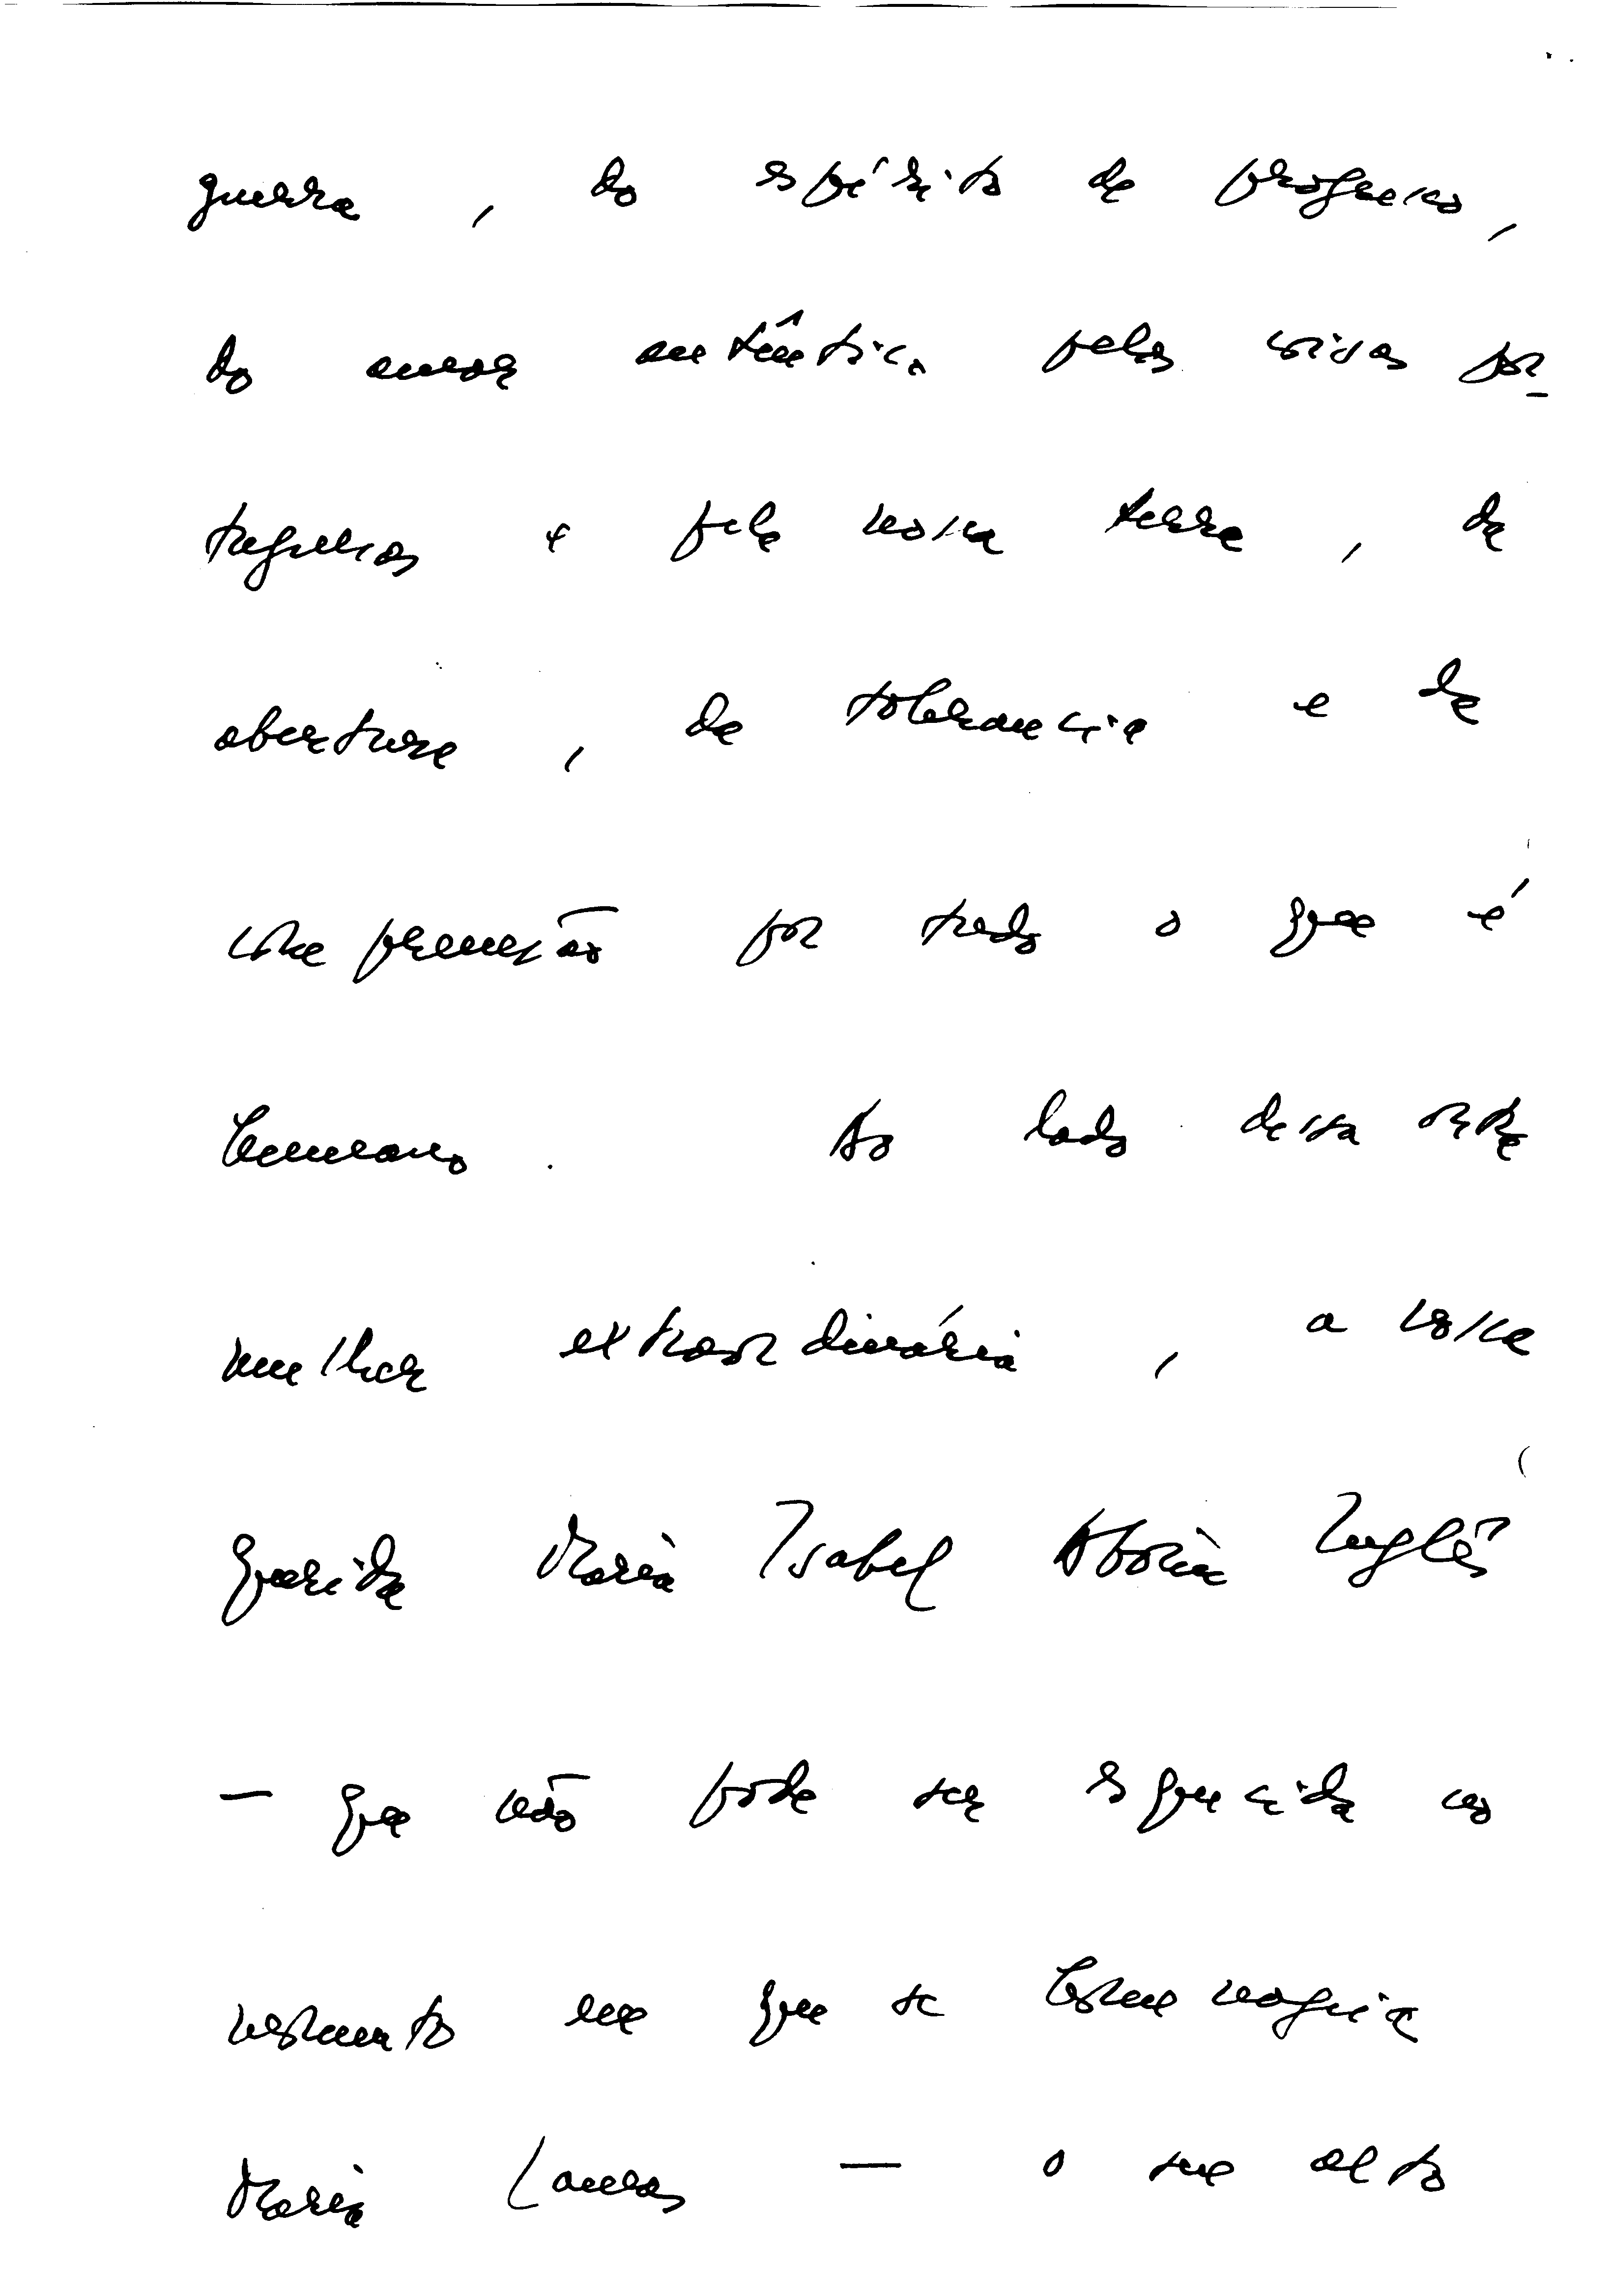 guerra, do espírito de progresso,
do amor autêntico pelas coisas por
tuguesas e pela nossa terra, da
abertura, da tolerancia e da
compreensão por tudo o que é
humano. Ao lado dessa outra
mulher extraordinária, a nossa
querida Maria Isabel Aboim Inglês
— que não pode ser esquecida no
momento em que se homenageia
Maria Lamas — o seu alto